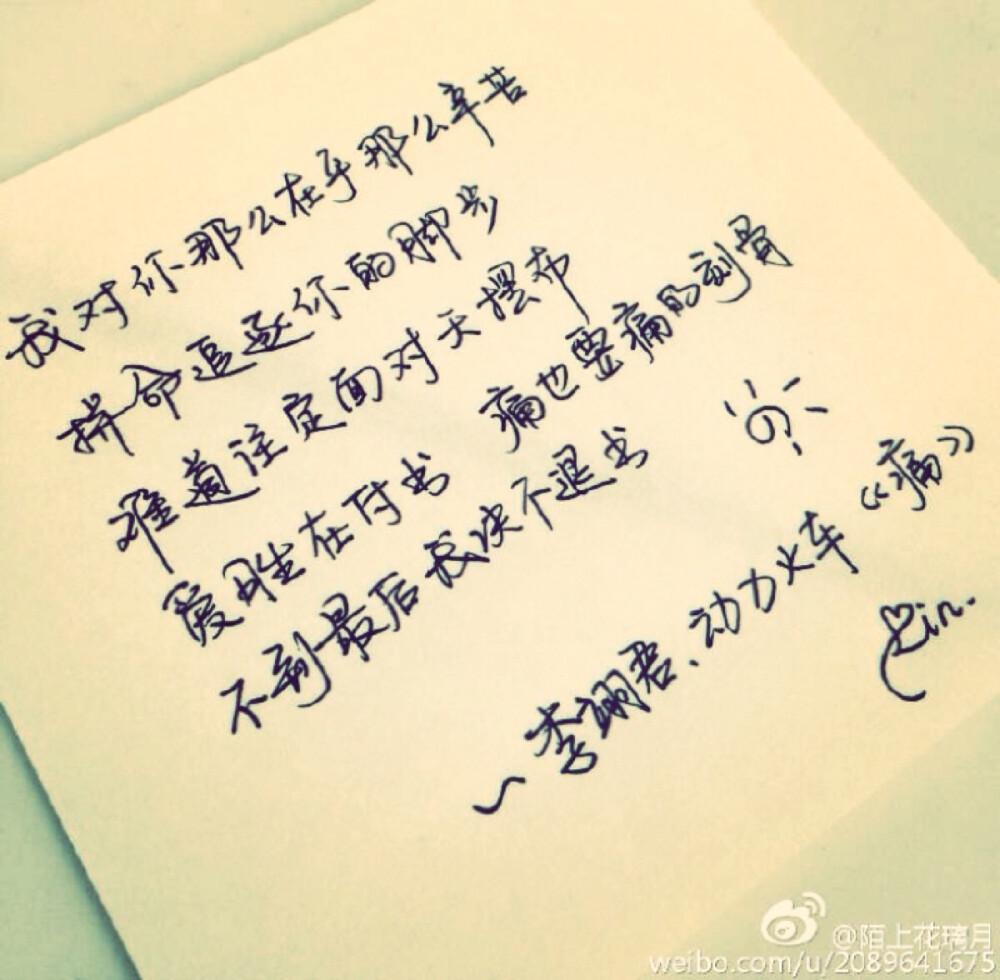 我对你那么在乎那么辛苦
拼命追逐你的脚步
难道注定面对天摆布
爱胜在付出 痛也要痛的刻骨
不到最后我决不退出
~李翊君、动力火车《痛》
in.
@陌上花璃月
weibo.com/u/2089641675